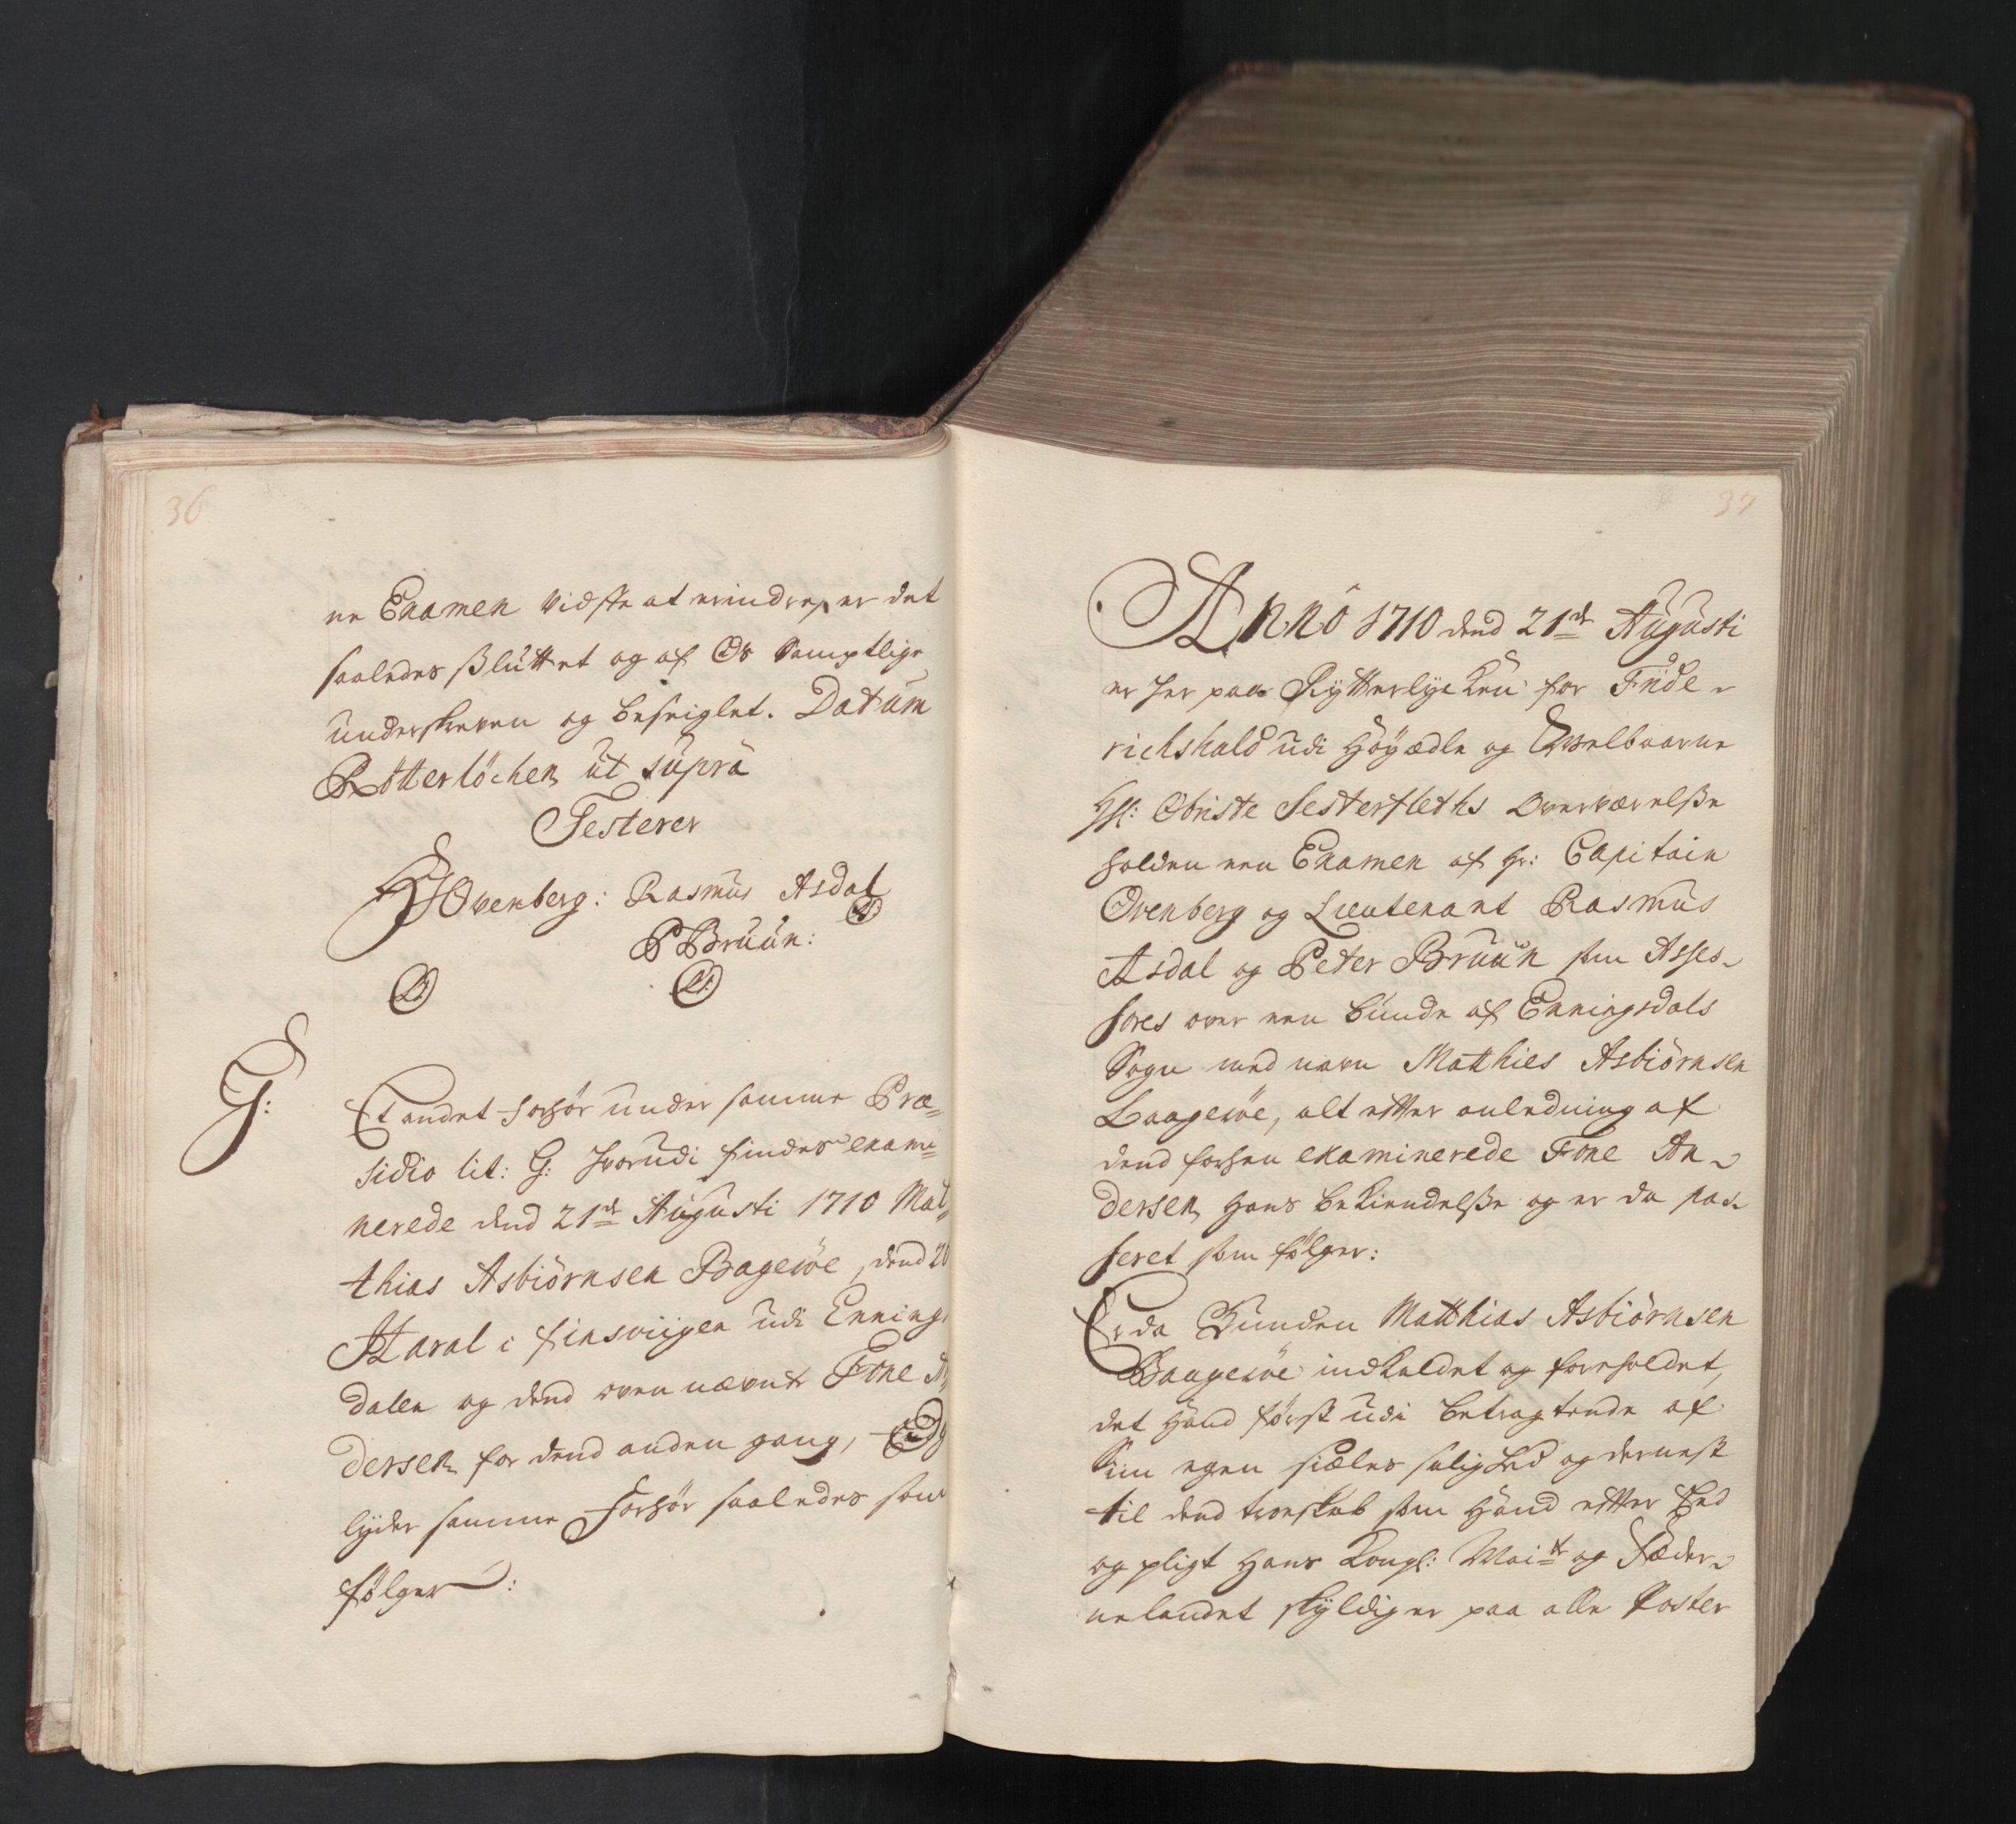 36
ne Examen vidste at erindre, er det
saaledes Sluttet og af Os Samptlige
underskreven og beseiglet. Datum
Rötterlöchen ut supra
Testerer
Ovenberg: Rasmus Asdal
P Bruun:
G:
Et andet forhör under samme Præ=
sidio lit: G: hvorudi findes exami=
nerede dend 21de Augusti 1710 Mat,,
thias Asbiörnsen Bageröe, dend
Haral i finsviigen udi Ennings
dalen og dend oven nævnte Tone A,,
dersen for dend anden gang,
lyder samme Forhör saaledes som
fölger:
37
Anno 1710 dend 21de Augusti
er her paa Rytterlychen for Fride-
richshald udi Höyædle og Velbaarne
Hl: Obriste Sesterfleths Overværelsse
holden een Examen af Hr: Capitain
Ovenberg og Lieutenant Rasmus
Asdal og Peter Bruun som Asses-
sores over een bunde af Enningsdals
Sogn med navn Matthies Asbiörnsen
Baageröe, alt efter anledning af
dend forhen examinerede Tone An-
dersen Hans bekiendelsse og er da pas-
seret som fölger:
Er da Bunden Matthias Asbiörnsen
Baageröe indkaldet og foreholdet,
det Hand först udi betragtende af
Siin egen siæles salighed og dernest
til dend troeskab som Hand efter Eed
og pligt Hans Kongl: Mait og Fæder-
nelandet skyldig er paa alle Poster